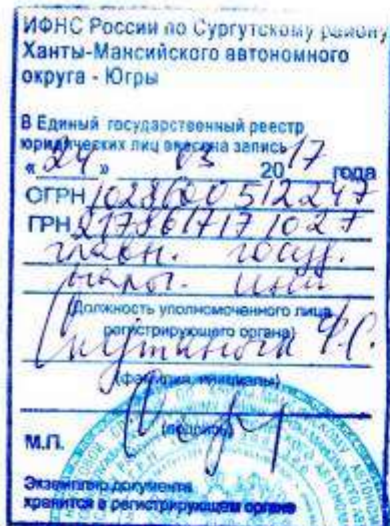 ИФНС России по Сургутскому району
Ханты-Мансийского автономного
округа - Югры
В Единый государственный реестр
юридических лиц внесена запись
« 24 » 03 2017 года
ОГРН 1028600512247
ГРН 2178617171027
главн. госуд.
налог. инсп
(Должность уполномоченного лица
регистрирующего органа)
Ф.С.
(фамилия, инициалы)
(подпись)
М.П.
Экземпляр документа
хранится в регистрирующем органе